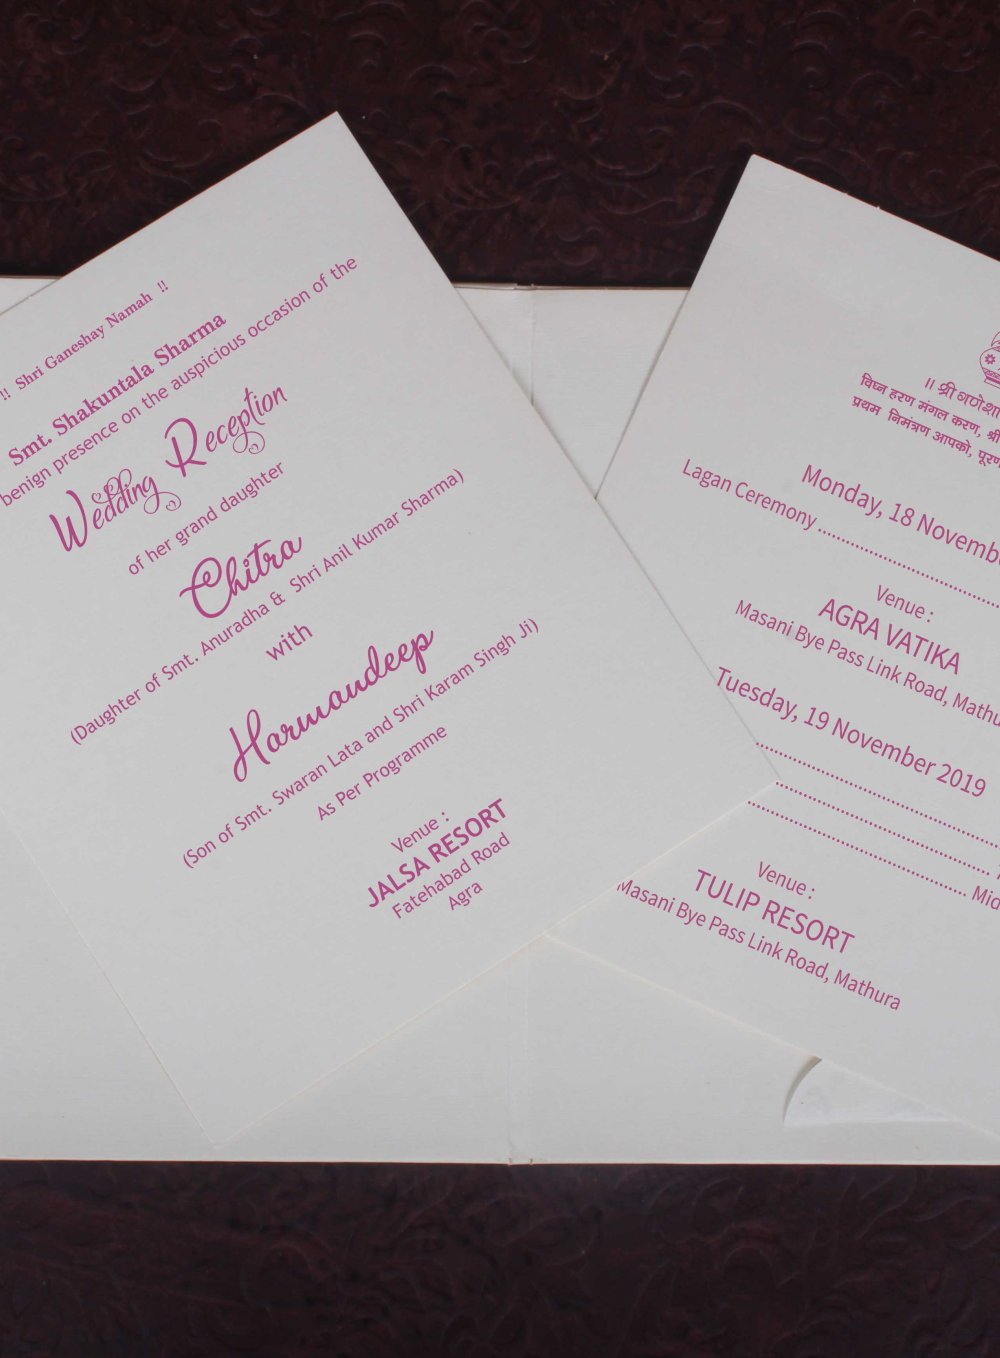 !! Shri Ganeshay Namah !!
Smt. Shakuntala Sharma
benign presence on the auspicious occasion of the
Wedding Reception
of her grand daughter
Chitra
(Daughter of Smt. Anuradha & Shri Anil Kumar Sharma)
with
Harmandeep
(Son of Smt. Swaran Lata and Shri Karam Singh Ji)
As Per Programme
Venue :
JALSA RESORT
Fatehabad Road
Agra
॥ श्री गणेशा
विघ्न हरण मंगल करण, श्री
प्रथम निमंत्रण आपको, पूरण
Monday, 18 Novembe
Lagan Ceremony ........................................
Venue :
AGRA VATIKA
Masani Bye Pass Link Road, Mathu
Tuesday, 19 November 2019
........................................
........................................
........................................ Mid
Venue :
TULIP RESORT
Masani Bye Pass Link Road, Mathura